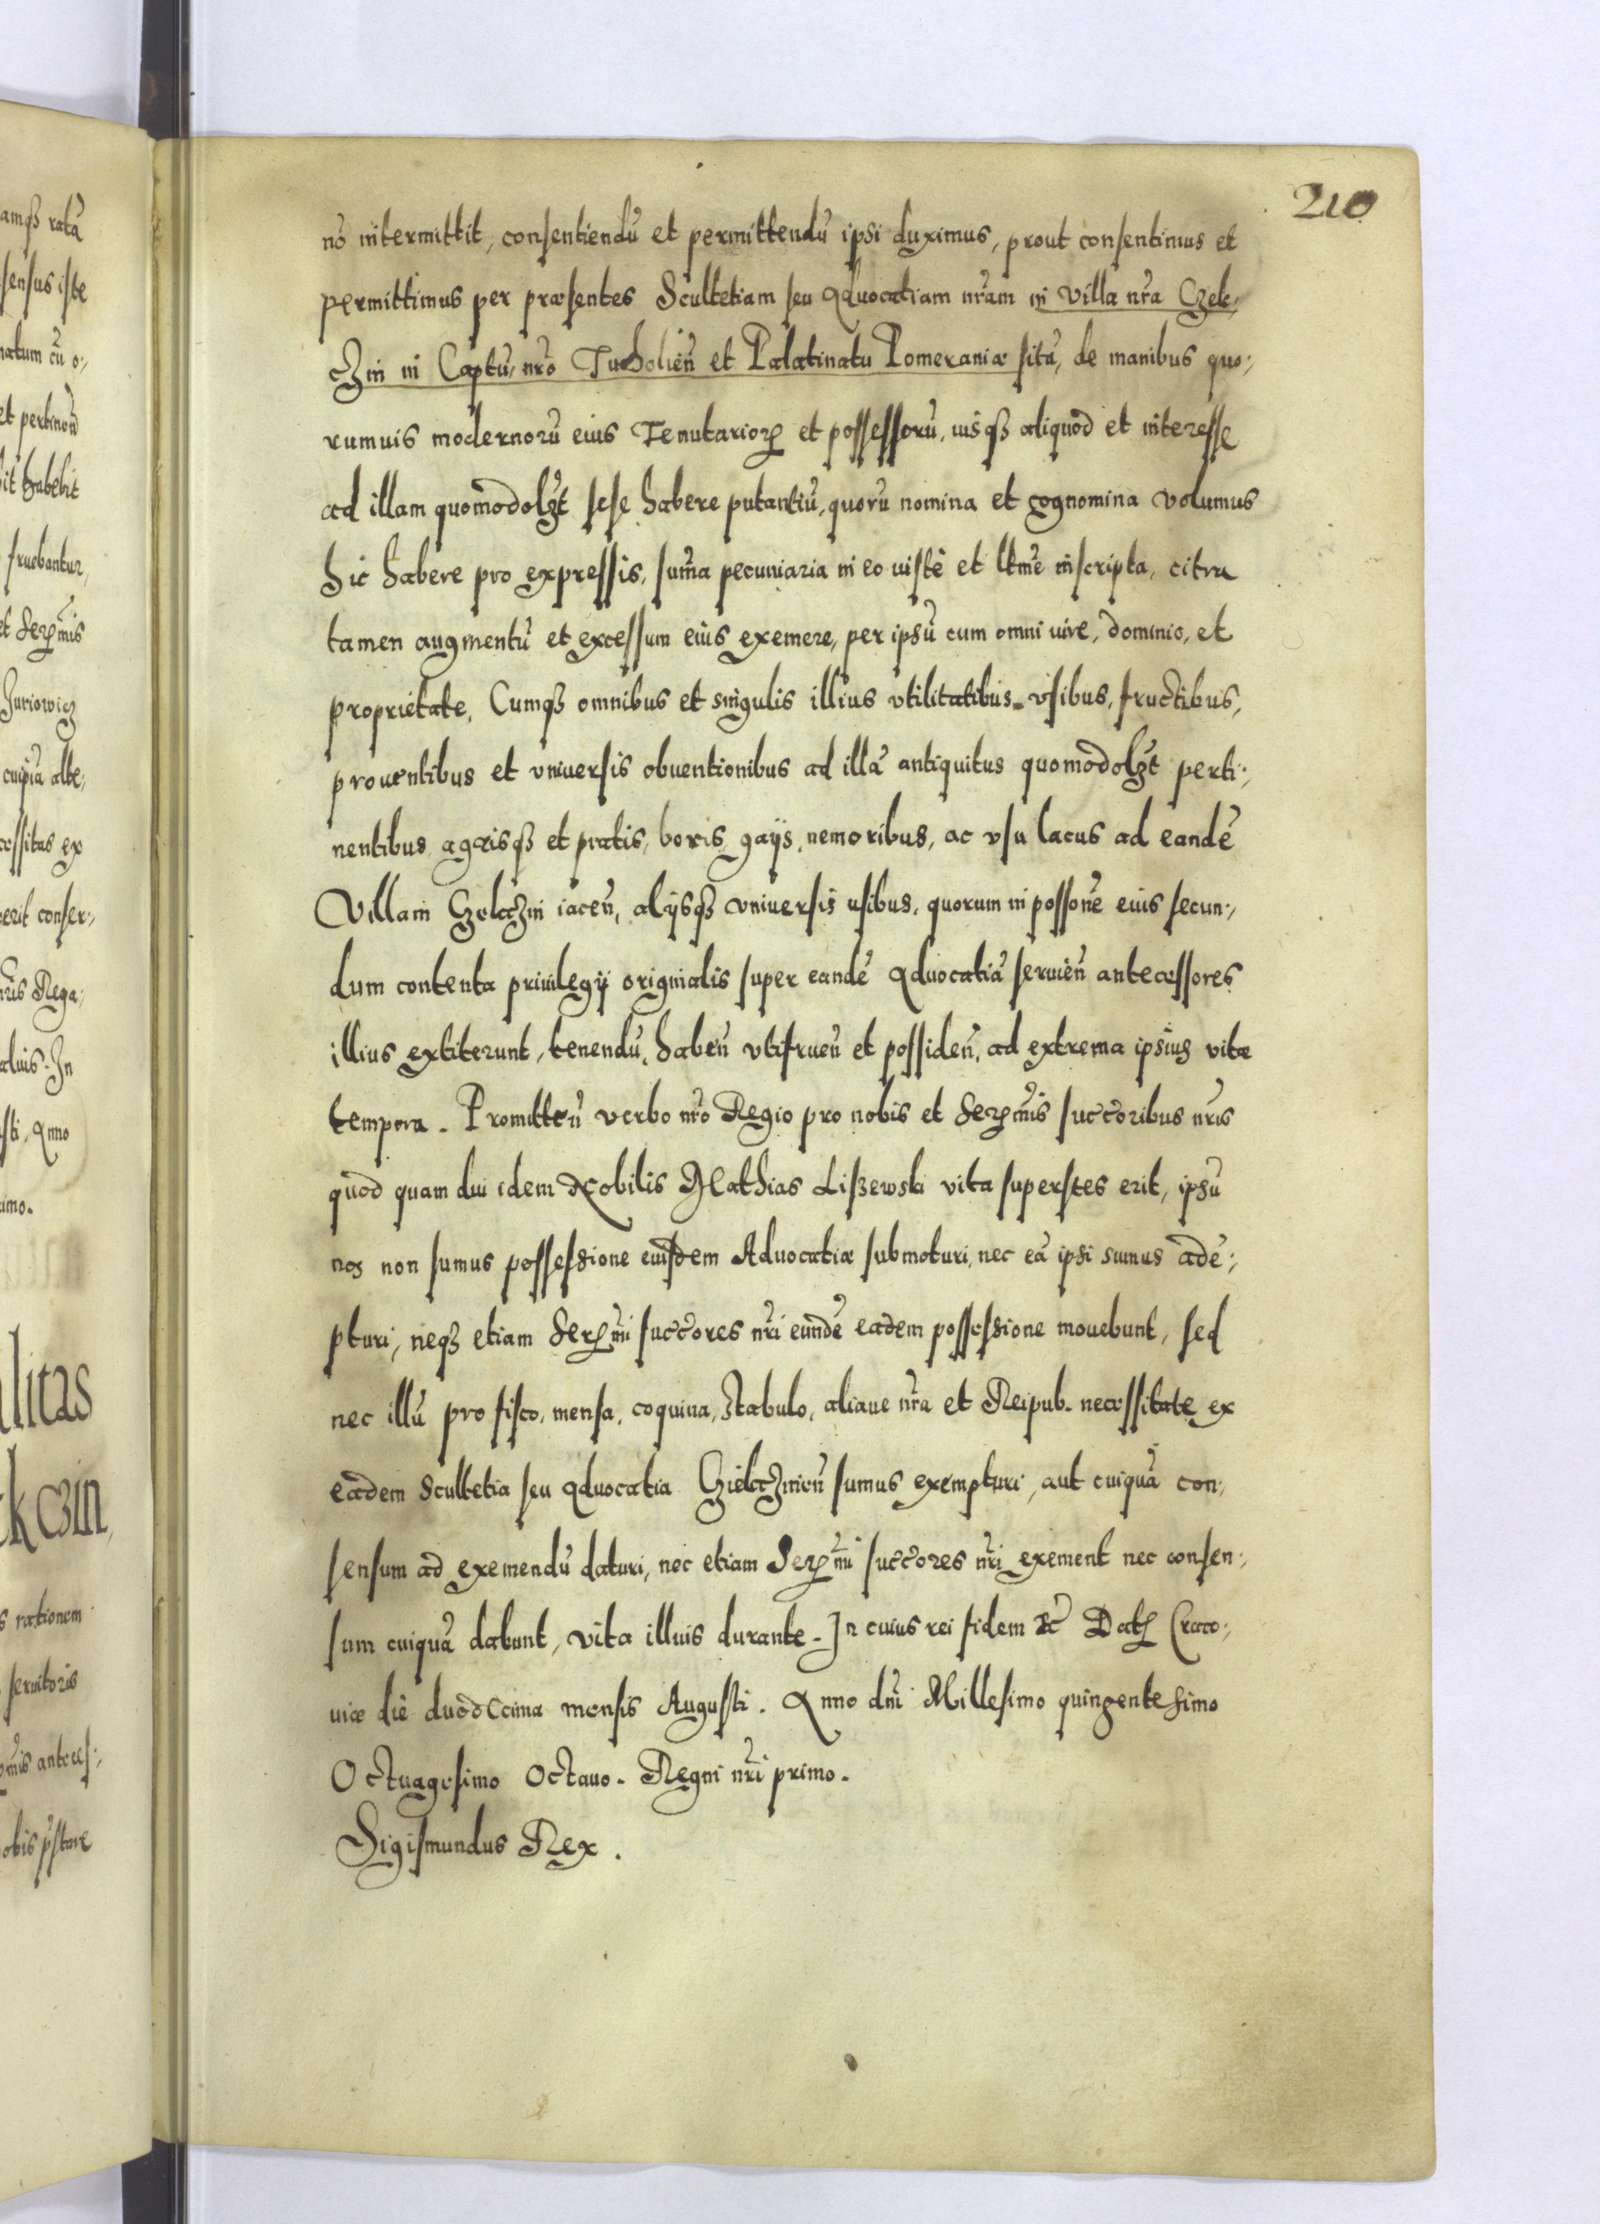 210
nō intermittit, consentiendū et permittendū ipsi duximus, prout consentimus et
permittimus per præsentes Scultetiam seu Aduocatiam nr̄am in Villa nr̄a Czele⸗
czin in Captū nr̄o Tucholien̄ et Palatinatu Pomeraniæ sitā, de manibus quo⸗
rumuis modernorū eius Tenutarioꝝ et possessorū, iusqꝫ aliquod et interesse
ad illam quomodolꝫt sese habere putantiū, quorū nomina et cognomina volumus
hic habere pro expressis, sum̄a pecuniaria in eo iuste et lt̄me inscripta, citra
tamen augmentū et excessum eius exemere, per ipsū cum omni iure, dominio, et
proprietate, Cumqꝫ omnibus et singulis illius vtilitatibus, vsibus, fructibus,
prouentibus et vniuersis obuentionibus ad illā antiquitus quomodolꝫt perti⸗
nentibus agrisqꝫ et pratis, boris, gaijs, nemoribus, ac vsu lacus ad eandē
Villam Czelczin iacen̄, alijsqꝫ vniuersis usibus, quorum in possōne eius secun⸗
dum contenta priuilegij originalis super eandē Aduocatiā seruien̄ antecessores
illius extiterunt, tenendū, haben̄ vtifruen̄ et possiden̄, ad extrema ipsius vitæ
tempora. Promitten̄ verbo nr̄o Regio pro nobis et Serꝫm̄is succ̄oribus nr̄is
quod quam diu idem Nobilis Mathias Liszewski vita superstes erit, ipsū
nos non sumus possessione eiusdem Aduocatiæ submoturi, nec eā ipsi sumus ade⸗
pturi, neqꝫ etiam Serꝫm̄i succ̄ores nr̄i eundē eadem possessione mouebunt, sed
nec illū pro fisco, mensa, coquina, stabulo, aliaue nr̄a et Reipub. necessitate ex
eadem Scultetia seu Aduocatia Czielczinien̄ sumus exempturi, aut cuiquā con⸗
sensum ad exemendū daturi, nec etiam Serꝫm̄i succ̄ores nr̄i exement nec consen⸗
sum cuiquā dabunt, vita illius durante. In cuius rei fidem &c̄ Datꝫ Craco⸗
uiæ die duodecima mensis Augusti. Anno dn̄i Millesimo quingentesimo
Octuagesimo Octauo. Regni nr̄i primo.
Sigismundus Rex.